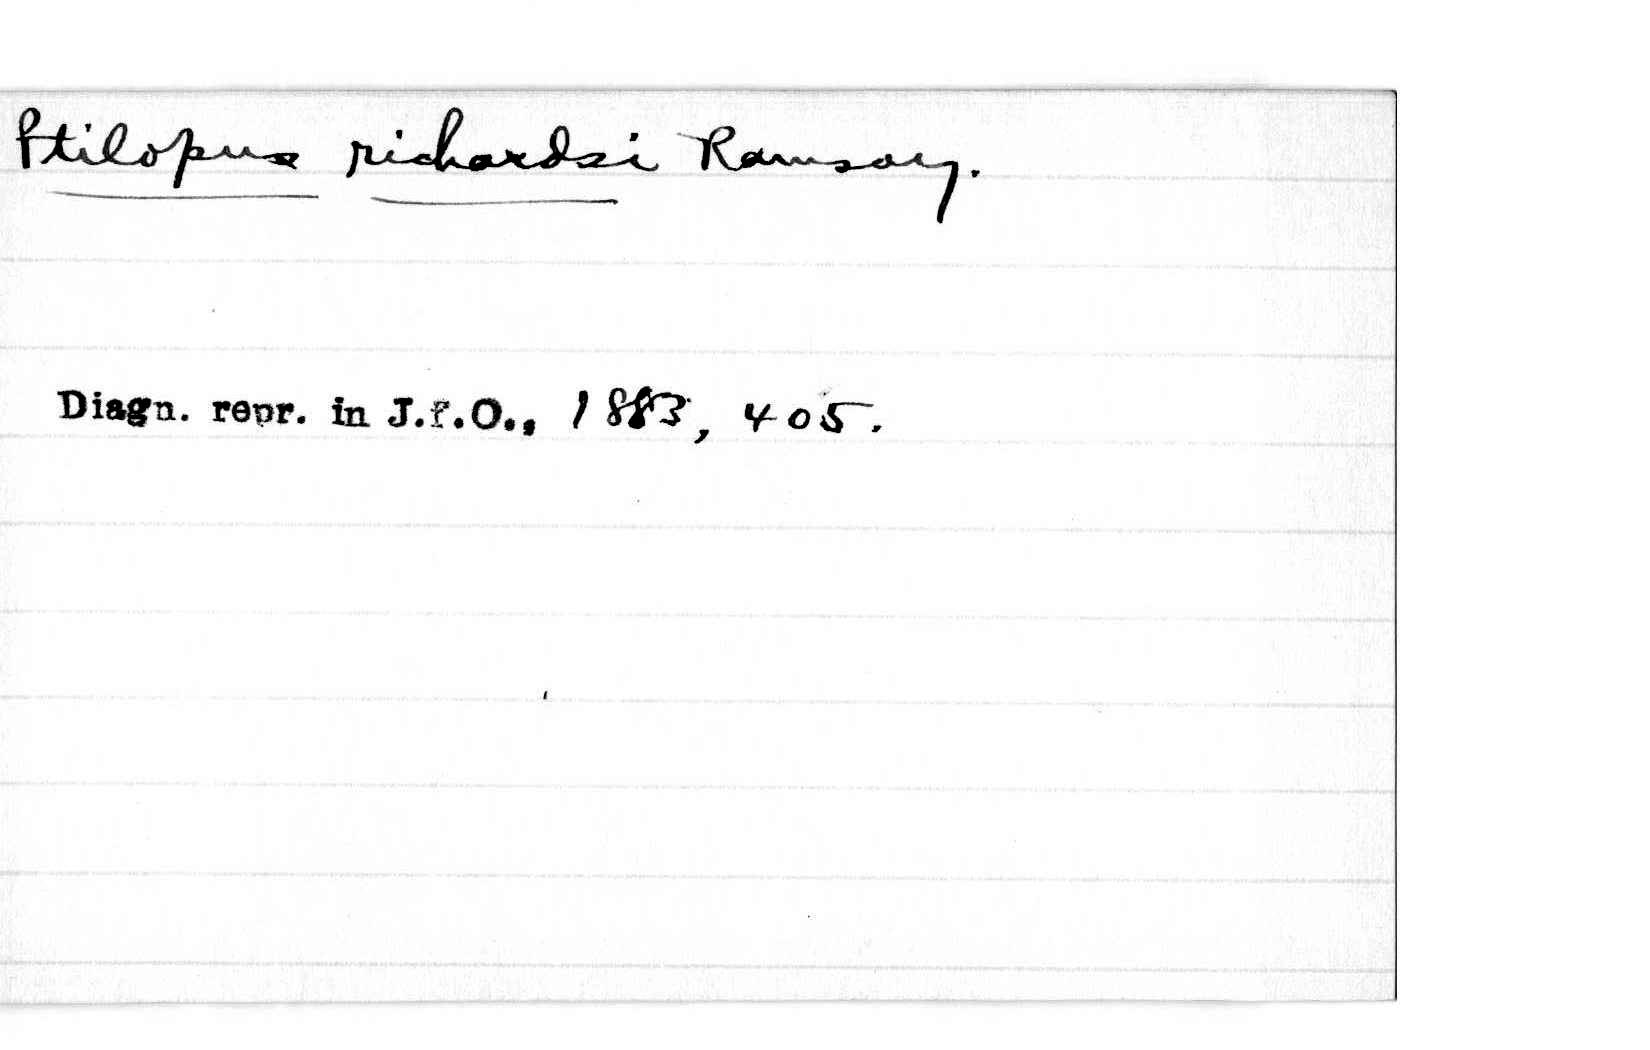 Ptilopus richardsi Ramsay.
Diagn. repr. in J.f.O., 1883, 405.